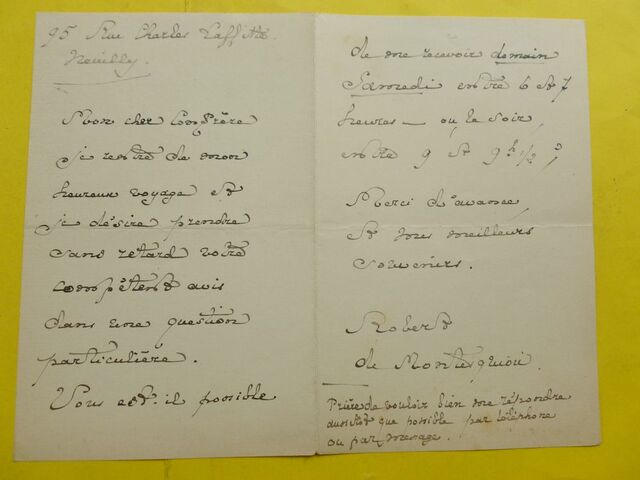 95 Rue Charles Laffitte.
Neuilly.
Mon cher Confrère
je rentre de mon
heureux voyage et
je désire prendre
sans retard votre
compétent avis
dans une question
particulière.
Vous est-il possible
de me recevoir demain
Samedi entre 6 et 7
heures — ou le soir,
entre 9 et 9h 1/2 ?
Merci d'avance,
et mes meilleurs
souvenirs.
Robert
de Montesquiou.
Prière de vouloir bien me répondre
aussitôt que possible par téléphone
ou par message.